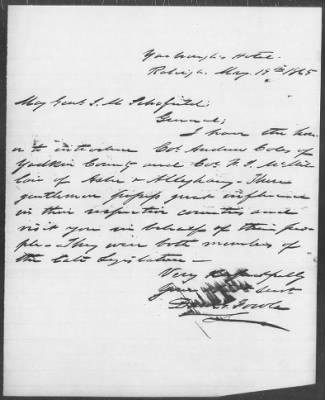 Yarbrough Hotel.
Raleigh. May. 19th 1865
Maj Genl J. M Schofield;
General;
I have the hon-
or to introduce Col Andrew Coles of
Yadkin County and Col
of Ashe & Alleghany. These
gentlemen possess great influence
in their respective counties and
visit you in behalf of their peo-
ple. They were both members of
the late Legislature—
Very Respectfully
Your
Fowle